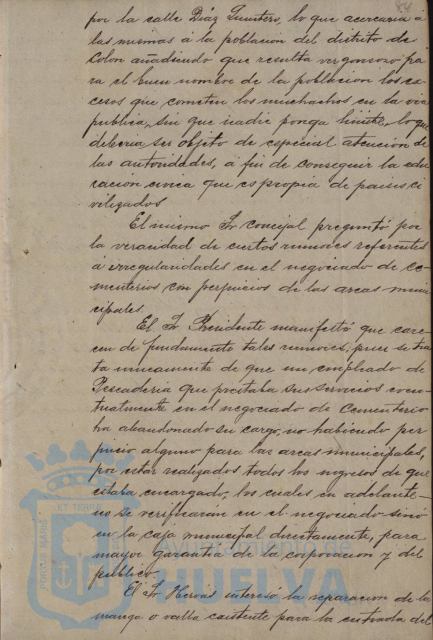 por la calle Diaz Quintero, lo que acercaria á
las mismas á la poblacion del distrito de
Colon añadiendo que resulta vergonzoso pa
ra el buen nombre de la poblacion los ex
cesos que cometen los muchachos en la via
publica, sin que nadie ponga limite, lo que
deberia ser objeto de especial atencion de
las autoridades, á fin de conseguir la edu
cación civica que es propia de paises ci
vilizados
El mismo Sr concejal preguntó por
la veracidad de ciertos rumores referentes
á irregularidades en el negociado de Ce-
menterios con perjuicios de las arcas muni
cipales.
El Sr Presidente manifestó que care
cen de fundamento tales rumores, pues se tra
ta unicamente de que un empleado de
Pescaderia que prestaba sus servicios even
tualmente en el negociado de Cementerio
ha abandonado su cargo, no habiendo per
juicio alguno para las arcas municipales,
por estar realizados todos los ingresos de que
estaba encargado, los cuales en adelante
no se verificarán en el negociado sinó
en la caja municipal directamente, para
mayor garantia de la corporacion y del
publico
El Sr Hervas interesó la reparacion de la
manga o valla existente para la entrada del
AYUNTAMIENTO DE
HUELVA
PORTUS MARIS
ET TERRÆ